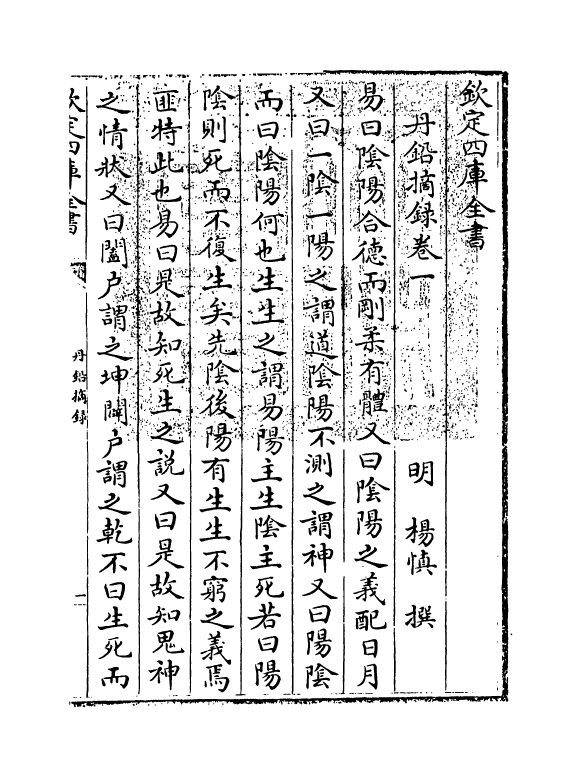 欽定四庫全書
丹鉛摘録卷一
明 楊慎 撰
易曰陰陽合德而剛柔有體又曰陰陽之義配日月
又曰一陰一陽之謂道陰陽不測之謂神又曰陽陰
而曰陰陽何也生生之謂易陽主生陰主死若曰陽
陰則死而不復生矣先陰後陽有生生不窮之義焉
匪特此也易曰是故知死生之説又曰是故知鬼神
之情狀又曰闔户謂之坤闢户謂之乾不曰生死而
欽定四庫全書
丹鉛摘録
一